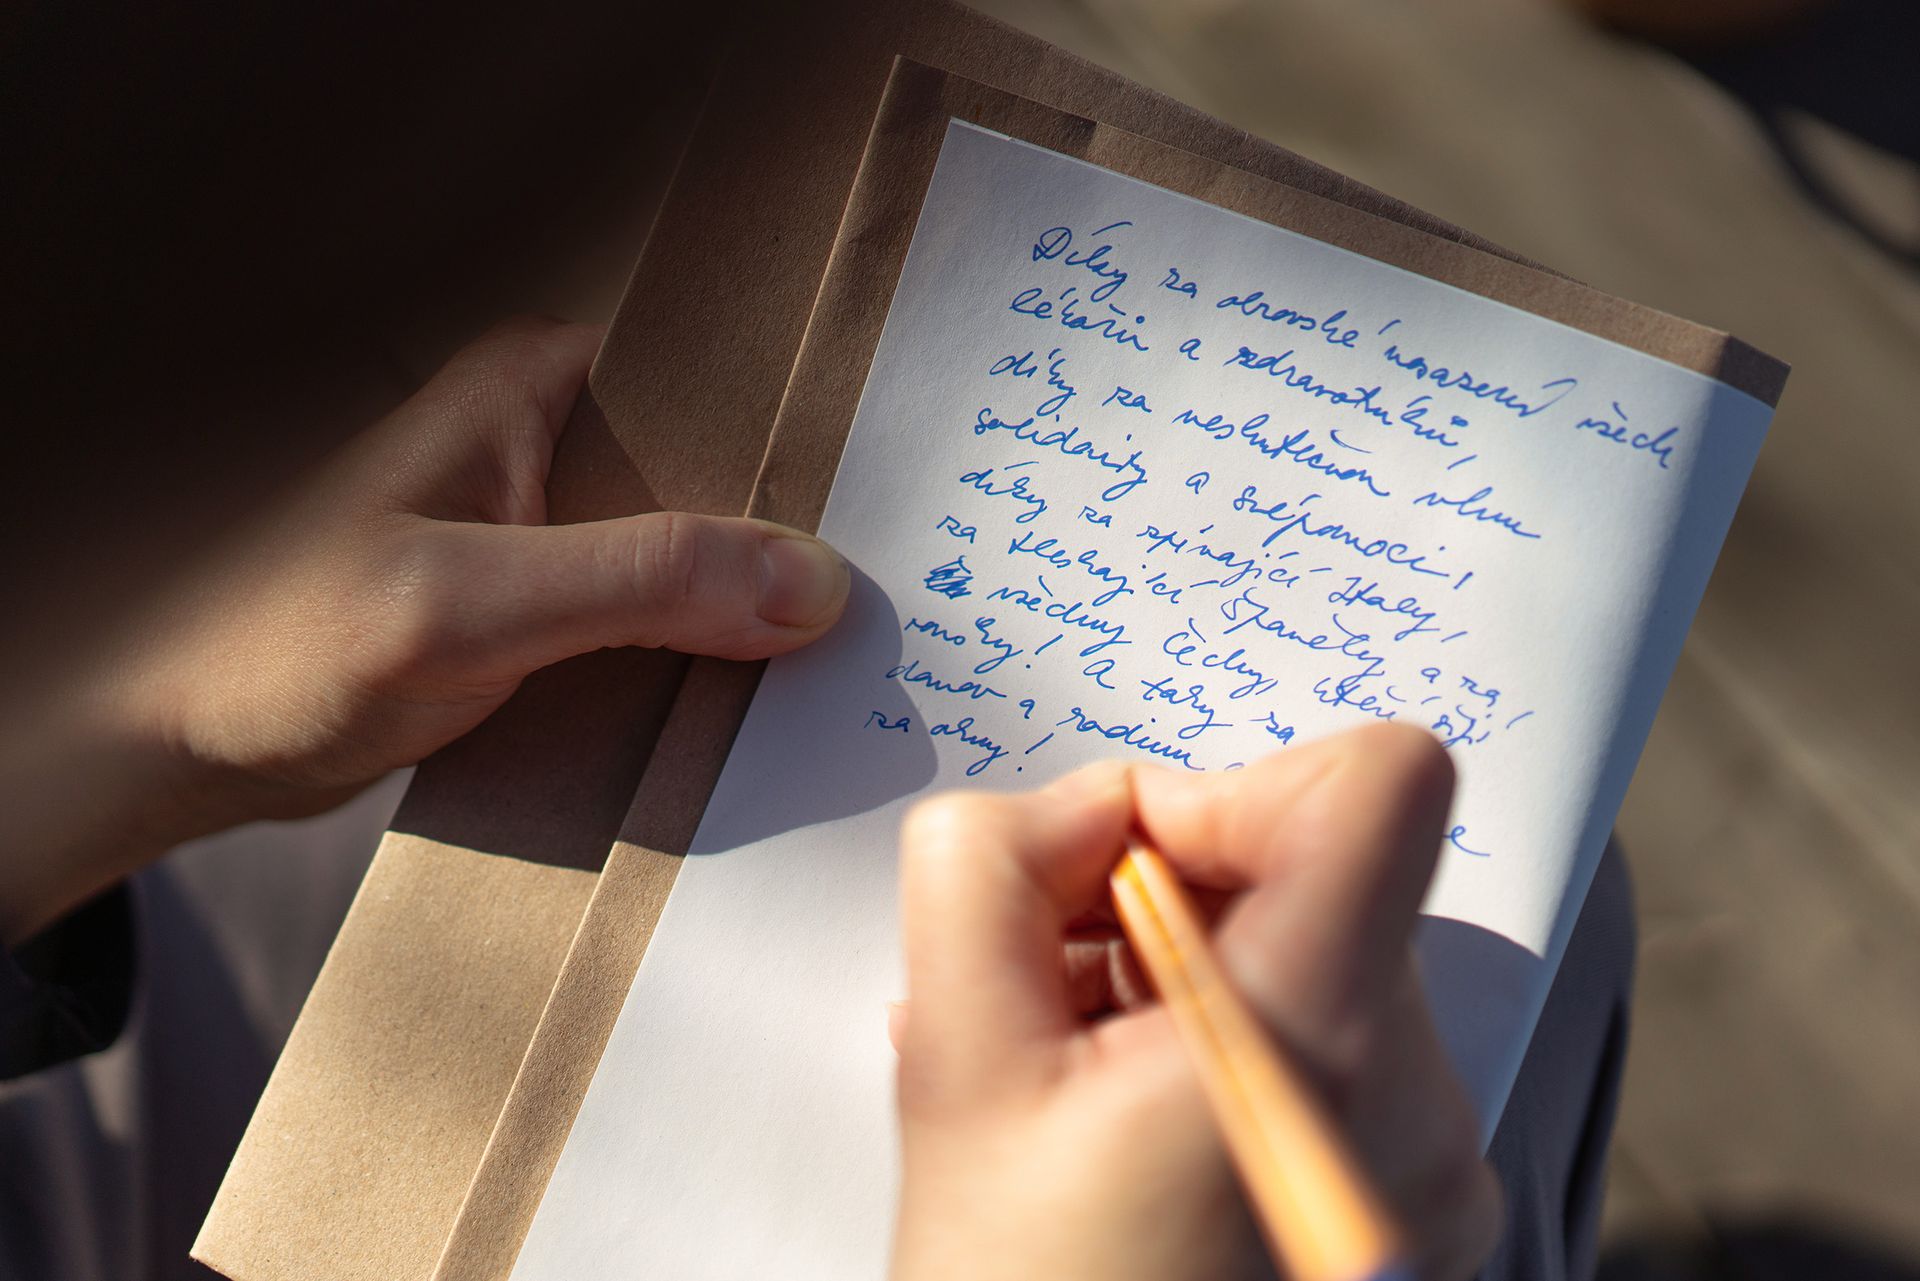 Díky za obrovské nasazení všech
lékařů a zdravotníků,
díky za neskutečnou vlnu
solidarity a svépomoci,
díky za zpívající Italy,
za tleskající Španěly a za
všechny Čechy, kteří šijí
roušky! A taky za
domov a rodinu
za okny!